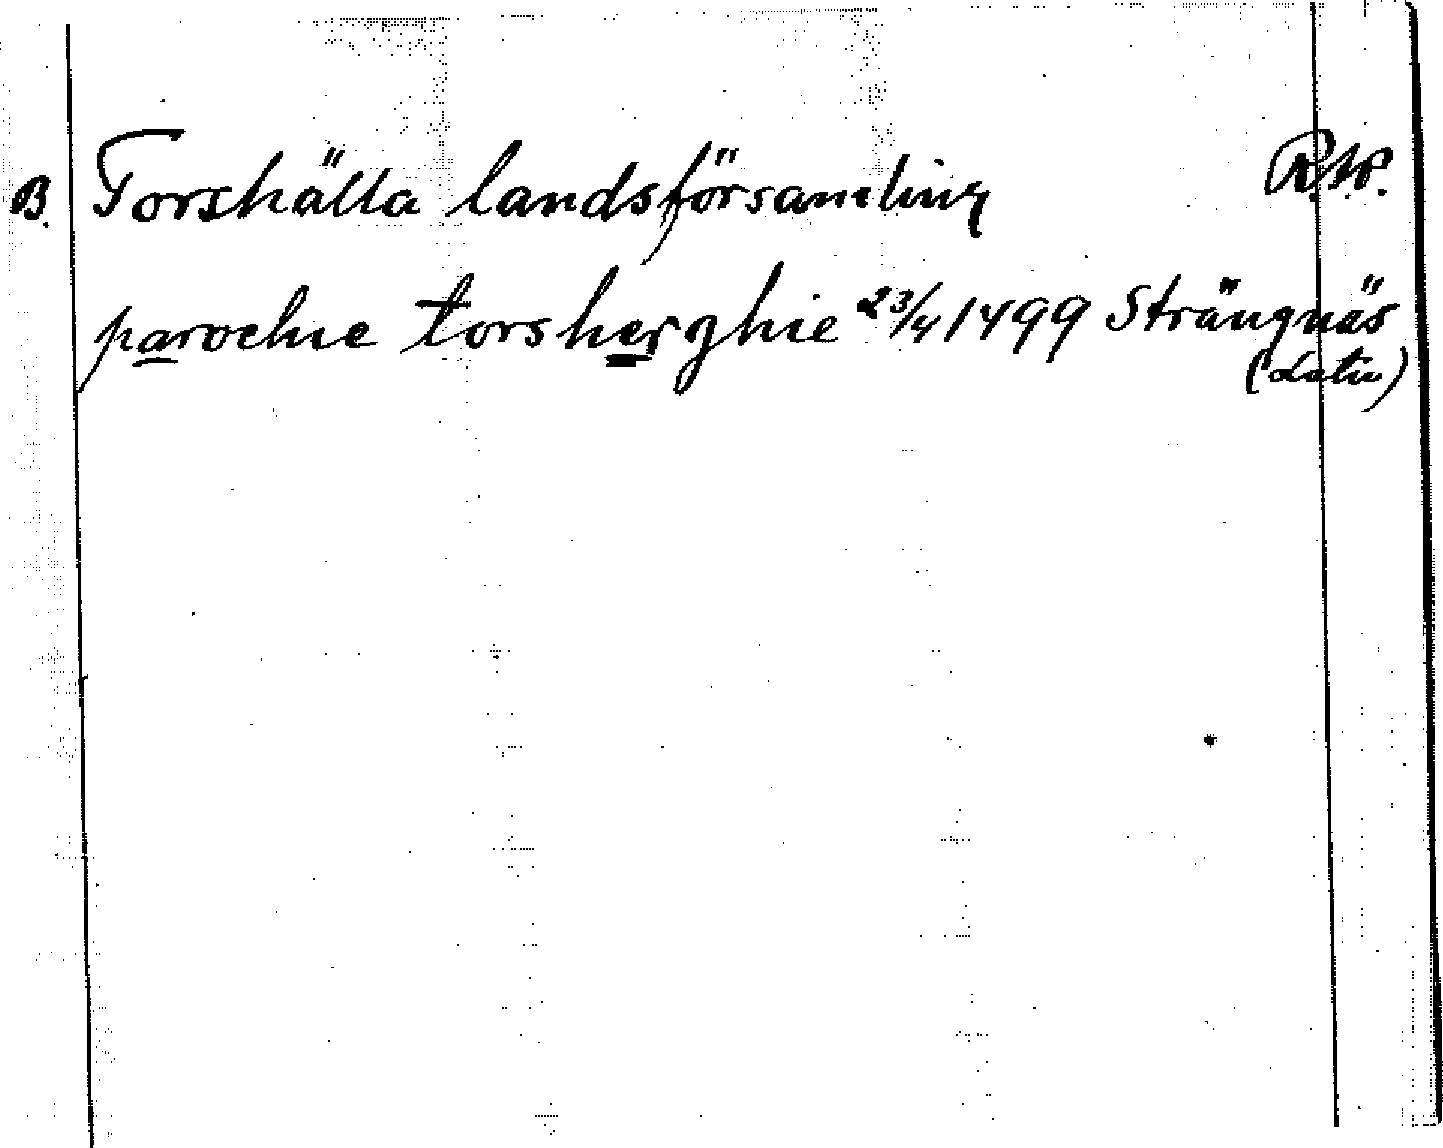 B. Torshälla landsförsamling RAP.
parochie torsherghie 23/4 1499 Strängnäs
(latin)